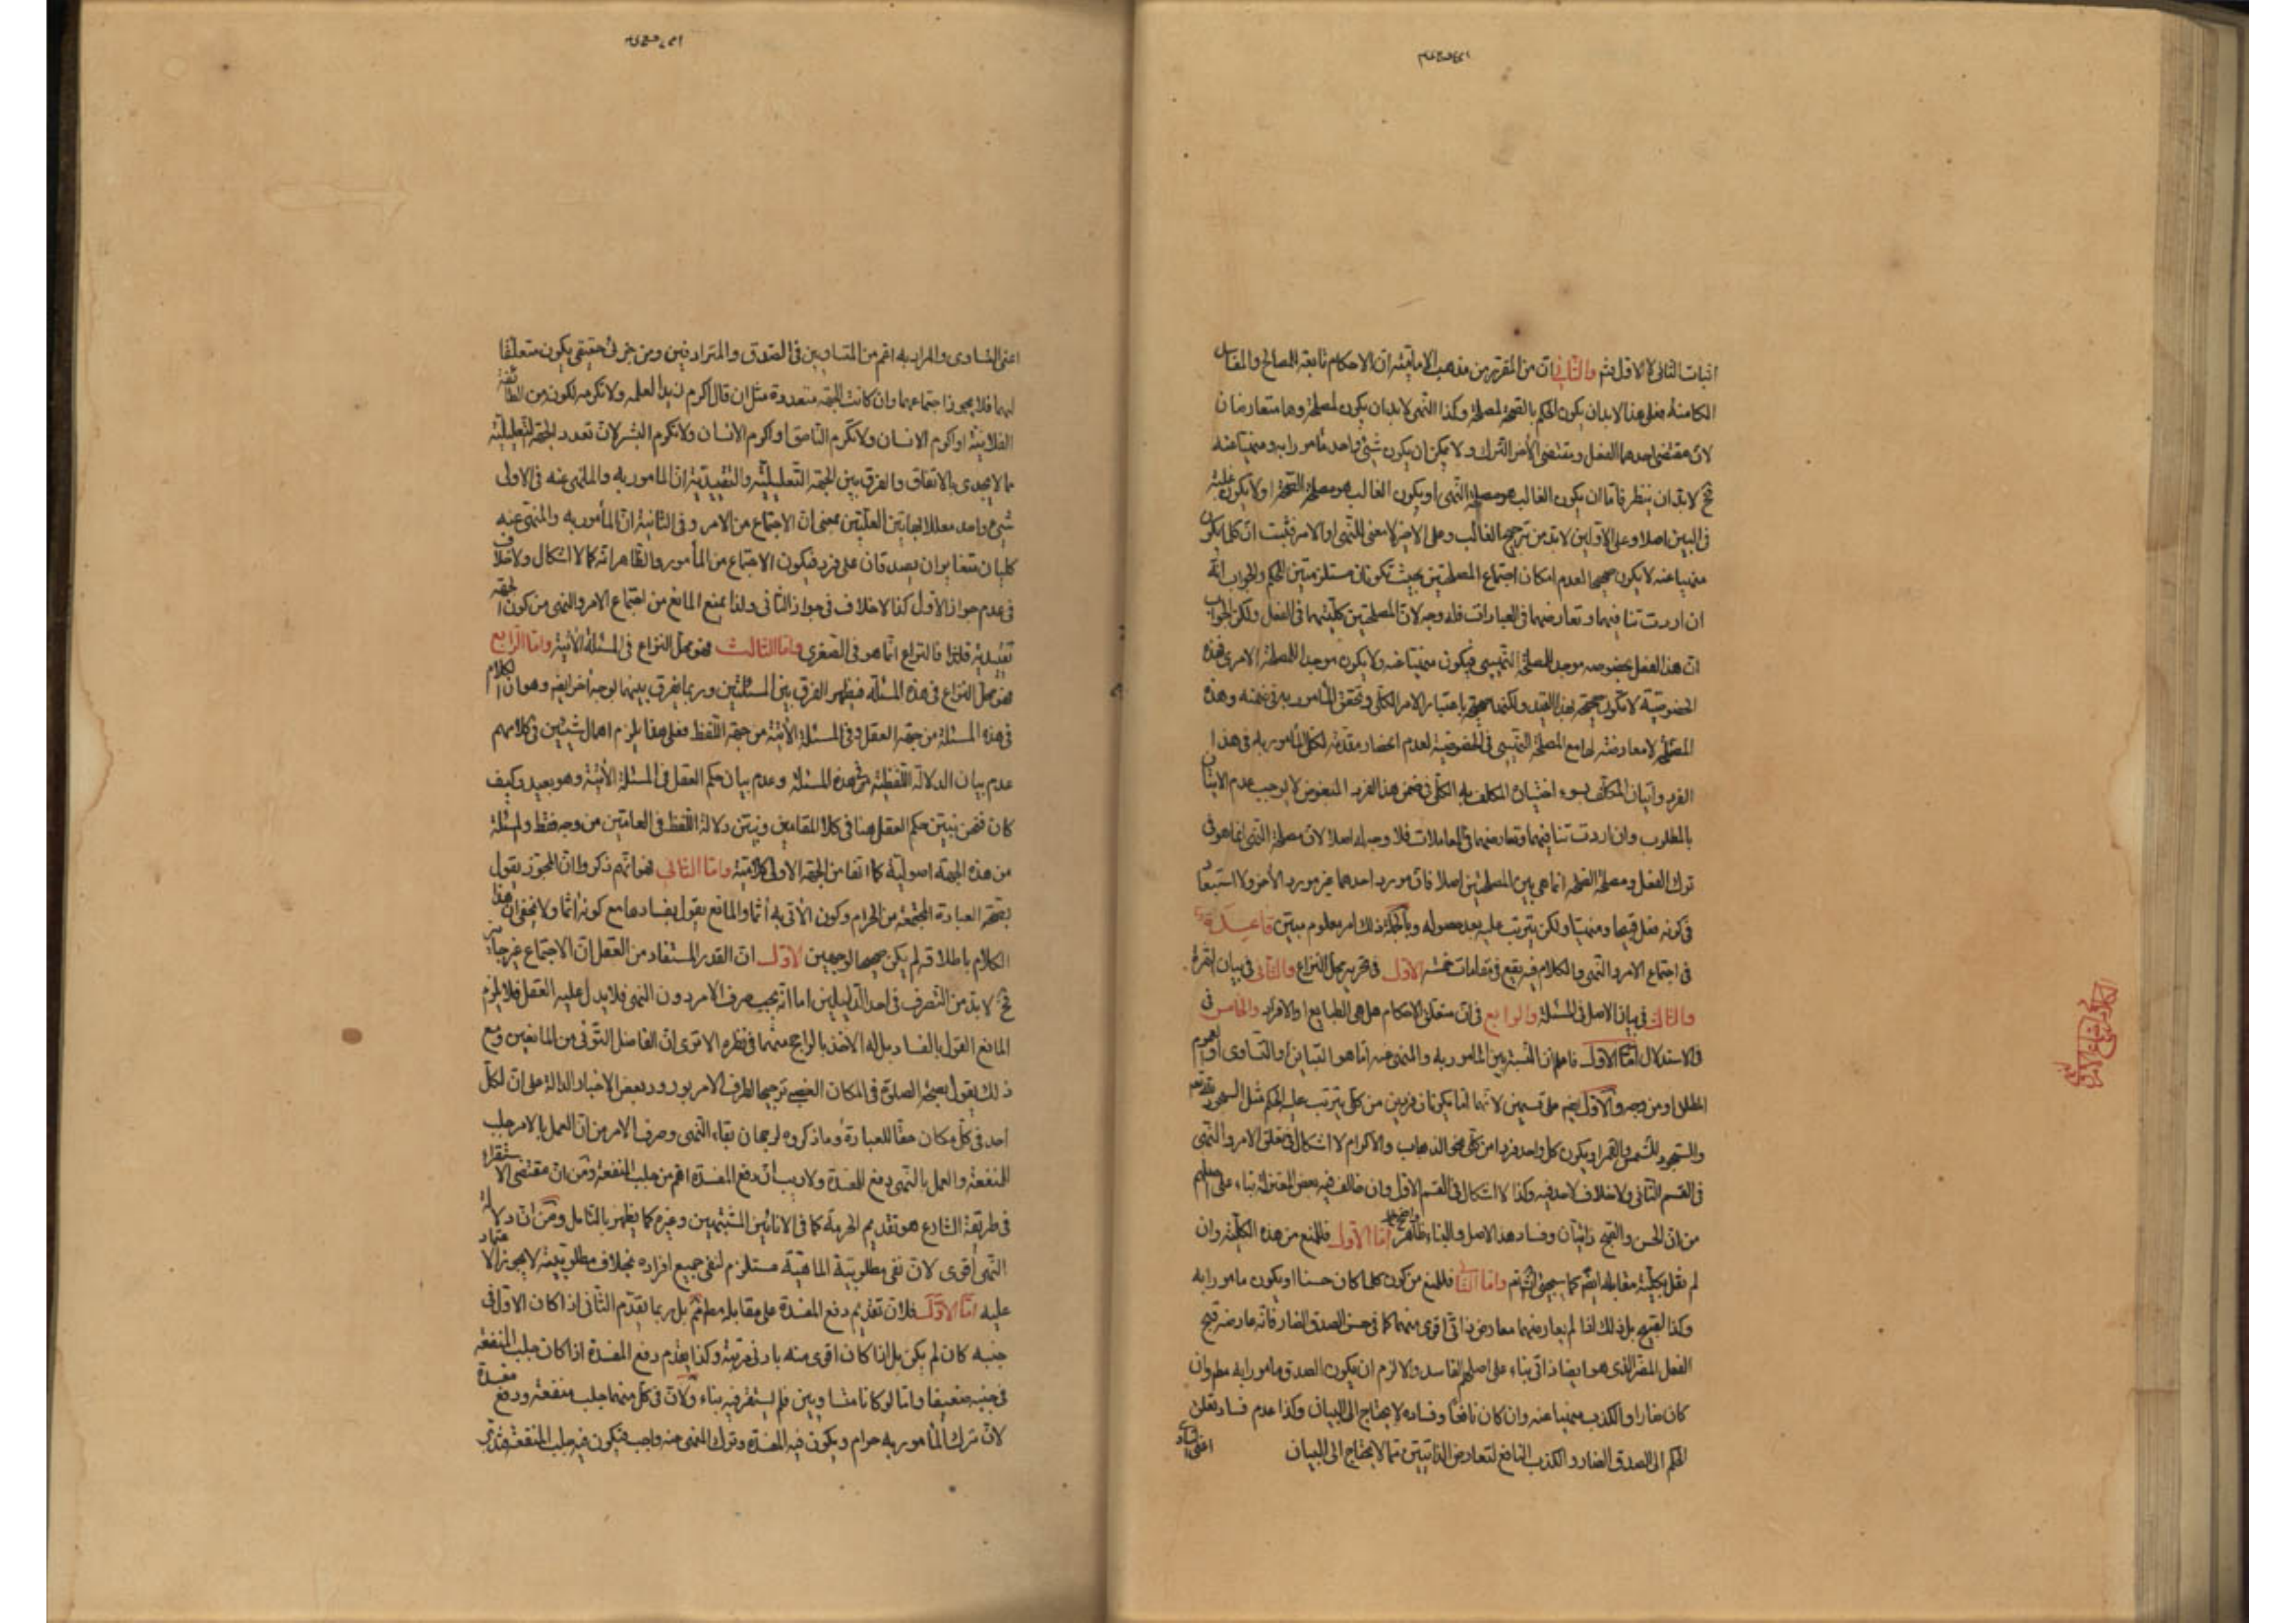 اثبات الثانى لا الاول ثم والثانى ان من المقرر من مذهب الامامية ان الاحكام تابعة للمصالح والمفاسد
الكامنة فعلى هذا لابد ان يكون الحكم بالصحة لمصلحة وكذا النهى لابد ان يكون لمصلحة وهما متعارضان
لان مقتضى احدهما الفعل ومقتضى الآخر الترك ولا يمكن ان يكون شىء واحد مأمورا به ومنهيا عنه
فح لابد ان ينظر فاما ان يكون الغالب هو مصلحة النهى او يكون الغالب هو مصلحة الصحة او لا يكون غلبة
فى البين اصلا وعلى الاولين لابد من ترجيح الغالب وعلى الاخير لا معنى للنهى او الامر فثبت ان كلما يكون
منهيا عنه لا يكون صحيحا لعدم امكان اجتماع المصلحتين بحيث تكونان مستلزمتين للحكم والجواب انه
ان اردت تنافيهما وتعارضهما فى العبادات فله وجه لان المصلحتين كلتيهما فى الفعل ولكن الجواب
ان هذا الفعل بخصوصه موجد للمصلحة فيكون منهيا عنه ولا يكون موجدا للمصلحة الامرى فهذه
الخصوصية لا تكون صحيحة بهذا القيد ولكنها صحيحة باعتبار الامر الكلى وتحقق المأمور به فى ضمنه وهذه
المصلحة لا معارضة لها مع المصلحة فى الخصوصية لعدم انحصار مقدمة لكلى المأمور به فى هذا
الفرد واتيان المكلف بسوء اختياره المكلف به الكلى فى ضمن هذا الفرد المبغوض لا يوجب عدم الاتيان
بالمطلوب وان اردت تنافيهما وتعارضهما فى المعاملات فلا وجه له اصلا لان مصلحة النهى انما هو فى
ترك الفعل ومصلحة الصحة انما هى بين المصلحتين اصلا فان مورد احدهما غير مورد الآخر ولا استبعاد
فى كونه فعل قبيحا ومنهيا ولكن يترتب عليه بعد حصوله وبالجملة ذلك امر معلوم مبين قاعدة
فى اجتماع الامر والنهى والكلام فيه يقع فى مقامات خمسة الاول فى تحرير محل النزاع والثانى فى بيان الثمرة
والثالث فى بيان الاصل فى المسئلة والرابع فى ان متعلق الاحكام هل هى الطبايع او الافراد والخامس فى
فى الاستدلال اما الاول فاعلم ان النسبة بين المأمور به والمنهى عنه اما هو التباين او التساوى او العموم
المطلق او من وجه والاول يقسم على قسمين لانهما اما يكونان فردين من كلى يترتب عليه الحكم مثل السجود لله تعالى
والسجود للشمس والقمر او يكون كل واحد فردا من كلى نحو الذهاب والاكرام لا اشكال فى تعلق الامر والنهى
فى القسم الثانى ولا خلاف لاحد فيه وكذا لا اشكال فى القسم الاول وان خالف فيه بعض المعتزلة بناء على اصلهم
من ان الحسن والقبح ذاتيان وفساد هذا الاصل والبناء ظاهر واضح اما الاول فللمنع من هذه الكلية وان
لم نقل بكلية مقابله ايضا كما سيجىء واما الثانى فللمنع من كون كلما كان حسنا او يكون مامورا به
وكذا القبيح بل ذلك اذا لم يعارضهما معارض ذاتى اقوى منهما كما فى حسن الصدق الضار فانه عارضه قبح
الفعل المضر الذى هو ايضا ذاتى بناء على اصلهم الفاسد والا لزم ان يكون الصدق مامورا به مط وان
كان ضارا والكذب منهيا عنه وان كان نافعا وفساده لا يحتاج الى البيان وكذا عدم فساد تعلق
الحكم الى الصدق الضار والكذب النافع لتعارض الذاتيتين مما لا يحتاج الى البيان
اعنى التساوى والمراد به اعم من المتساويين فى الصدق والمترادفين ومن جزئى حقيقى يكون متعلقا
لهما فلا يجوز اجتماعهما وان كانت الجهة متعددة مثل ان قال اكرم زيدا لعلمه ولا تكرمه لكونه من الطائفة
الفلانية او اكرم الانسان ولا تكرم الناطق او اكرم الانسان ولا تكرم البشر لان تعدد الجهة التعليلية
مما لا يجدى بالاتفاق والفرق بين الجهة التعليلية والتقييدية ان المامور به والمنهى عنه فى الاولى
شىء واحد معللا بهاتين العلتين بمعنى ان الاجتماع من الامر وفى الثانية ان المأمور به والمنهى عنه
كليان متغايران يصدقان على فرد فيكون الاجتماع من المأمور والظاهر انه كما لا اشكال ولا خلاف
فى عدم جواز الاول كذا لا خلاف فى جواز الثانى ولذا يمنع المانع من اجتماع الامر والنهى من كون الجهة
تقييدية فالنزاع انما هو فى الصغرى واما الثالث فهو محل النزاع فى المسئلة الآتية واما الرابع
فهو محل النزاع فى هذه المسئلة فيظهر الفرق بين المسئلتين وربما يفرق بينهما لوجه آخر ايضا وهو ان الكلام
فى هذه المسئلة من جهة العقل وفى المسئلة الآتية من جهة اللفظ فعلى هذا يلزم اهمال شيئين فى كلامهم
عدم بيان الدلالة اللفظية فى هذه المسئلة وعدم بيان حكم العقل فى المسئلة الآتية وهو بعيد وكيف
كان فنحن نبين حكم العقل هنا فى كلا المقامين ونبين دلالة اللفظ فى العامين من وجه فقط والمسئلة
من هذه الجهة اصولية كما انها من الجهة الاولى كلامية واما الثانى فهو انهم ذكروا ان المجوز يقول
بصحة العبادة المجتمعة من الحرام وكون الآتى به آثما والمانع يقول بفسادها مع كونه آثما ولا يخفى ان هذا
الكلام باطلاقه لم يكن صحيحا لوجهين الاول ان القدر المستفاد من العقل ان الاجتماع غير جائز
فح لابد من التصرف فى احد الدليلين اما انه يجب صرف الامر دون النهى فلا يدل عليه العقل فلا يلزم
المانع القول بالفساد بل له الاخذ بالراجح منهما فى نظره الا ترى ان الفاضل التونى من المانعين ومع
ذلك يقول بصحة الصلوة فى المكان الغصبى ترجيحا لطرف الامر بورود بعض الاخبار الدالة على ان لكل
احد فى كل مكان حقا للعبادة وما ذكروه لرجحان بقاء النهى وصرف الامر من ان العمل بالامر جلب
للمنفعة والعمل بالنهى دفع للمفسدة ولا ريب ان دفع المفسدة اهم من جلب المنفعة ومن ان مقتضى الاستقراء
فى طريقة الشارع هو تقديم الحرمة كما فى الانائين المشتبهين وغيره كما يظهر بالتامل ومن ان دلالة
النهى اقوى لان نفى مطلوبية الماهية مستلزم لنفى جميع افراده بخلاف مطلوبيته لا يجوز الاعتماد
عليه اما الاول فلان تقديم دفع المفسدة على مقابله مط مم بل ربما يقدم الثانى اذا كان الاول فى
جنبه كان لم يكن بل اذا كان اقوى منه بادنى مرتبة وكذا يقدم دفع المفسدة اذا كان جلب المنفعة
فى جنبه ضعيفا واما لو كانا متساويين فلم يستقر فيه بناء ولان فى كل منهما جلب منفعة ودفع مفسدة
لان ترك المأمور به حرام ويكون فيه المفسدة وترك المنهى عنه واجب فيكون فيه جلب المنفعة فتدبر